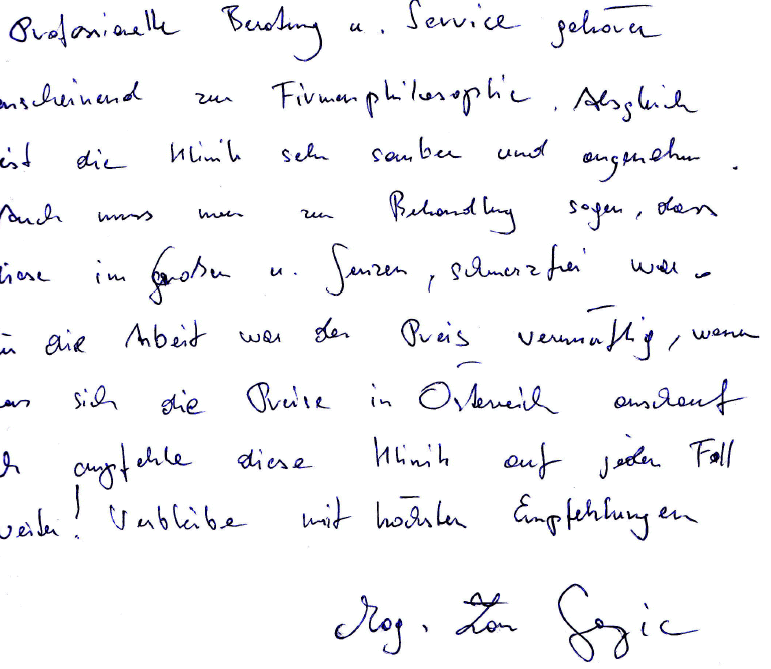 Professionelle Beratung u. Service gehören
anscheinend zur Firmenphilosophie. Absgleich
ist die Klinik sehr sauber und angenehm.
Auch muss man zur Behandlung sagen, dass
diese im Großen u. Ganzen, schmerzfrei war.
die Arbeit war der Preis vernünftig, wenn
sich die Preise in Österreich anschaut
empfehle diese Klinik auf jeden Fall
weiter! Verbleibe mit höchsten Empfehlungen
Mag.